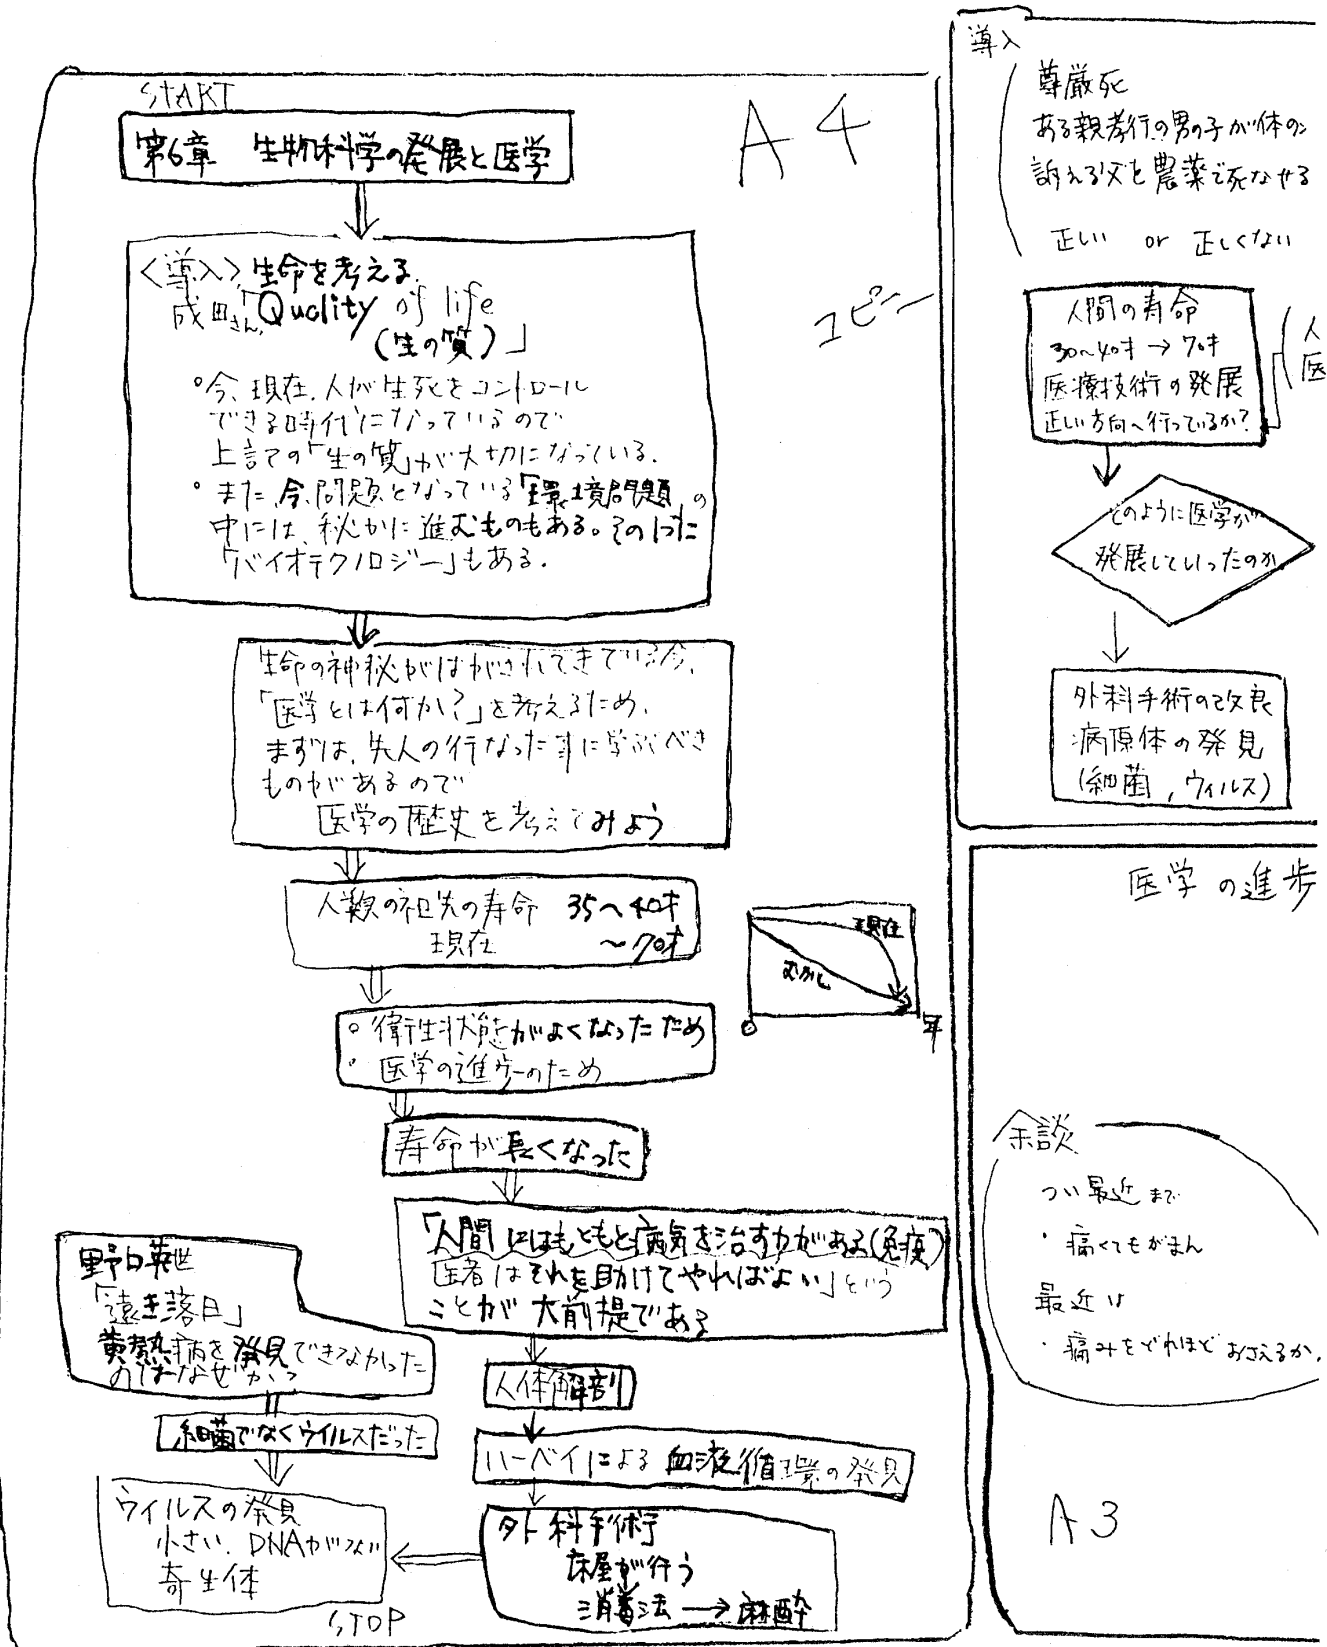 START
第6章 生物科学の発展と医学
A4
コピー
<導入>生命を考える
成田さん「Quality of life
(生の質)」
・今、現在、人が生死をコントロール
できる時代になっているので
上記での「生の質」が大切になっている。
・また、今、問題となっている「環境問題」の
中には、秘かに進むものもある。その1つに
「バイオテクノロジー」もある。
生命の神秘がはがされてきている今、
「医学とは何か?」を考えるため、
まずは、先人の行なった事に学ぶべき
ものがあるので
医学の歴史を考えてみよう
人類の祖先の寿命 35〜40才
現在 〜70才
現在
むかし
0
年
・衛生状態がよくなったため
・医学の進歩のため
寿命が長くなった
「人間にはもともと病気を治す力がある(免疫)
医者はそれを助けてやればよい」という
ことが大前提である
人体解剖
ハーベイによる血液循環の発見
外科手術
床屋が行う
消毒法→麻酔
野口英世
「遠き落日」
黄熱病を発見できなかった
のはなぜか?
細菌でなくウイルスだった
ウィルスの発見
小さい、DNAが
寄生体
STOP
導入
尊厳死
ある親孝行の男の子が体の
訴える父を農薬で死なせる
正しい or 正しくない
人間の寿命
30〜40才→70才
医療技術の発展
正しい方向へ行っているか?
人
医
そのように医学が
発展していったのか
外科手術の改良
病原体の発見
(細菌,ウィルス)
医学の進歩
余談
つい最近まで
・痛くてもがまん
最近は
・痛みをどれほどおさえるか、
A3